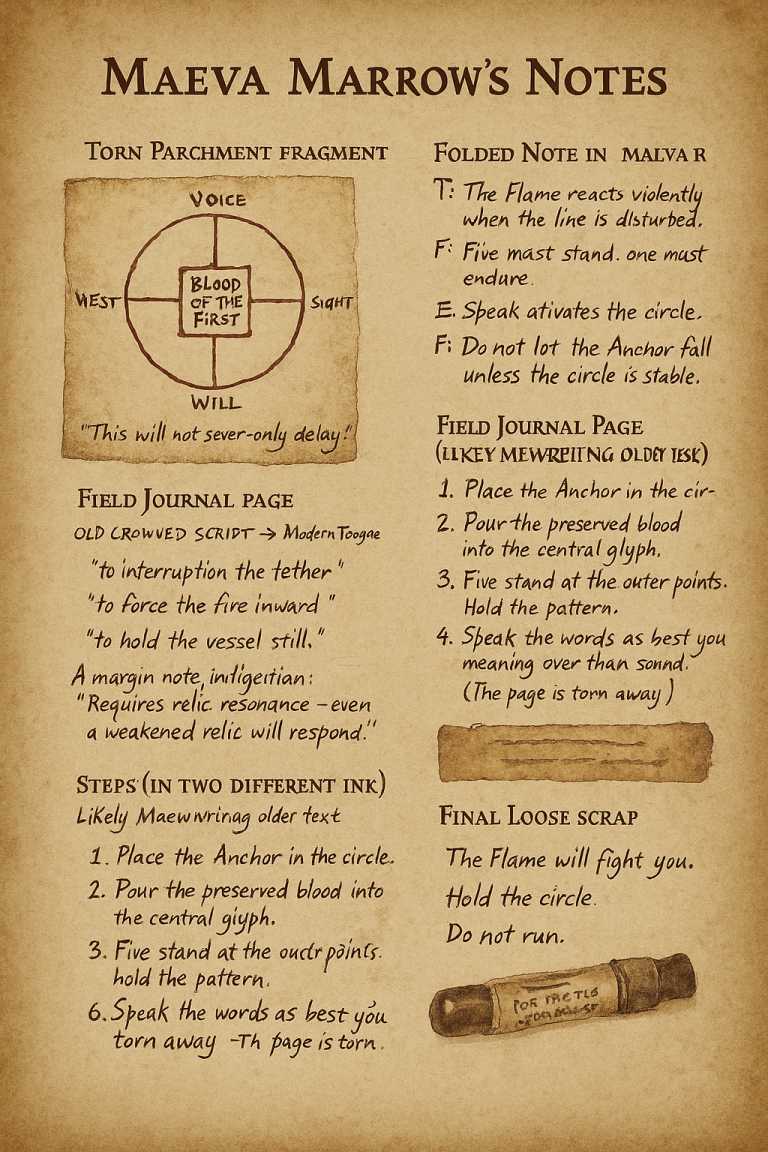 MAEVA MARROW'S NOTES
TORN PARCHMENT FRAGMENT
VOICE
WEST
BLOOD
OF THE
FIRST
SIGHT
WILL
"This will not sever-only delay!"
FIELD JOURNAL PAGE
OLD CROWVED SCRIPT → Modern Toogae
"to interruption the tether"
"to force the fire inward"
"to hold the vessel still."
A margin note,
"Requires relic resonance – even
a weakened relic will respond."
STEPS (IN TWO DIFFERENT INK)
Likely older text
1. Place the Anchor in the circle.
2. Pour the preserved blood into
the central giyph.
3. Five stand at the points.
hold the pattern.
6. Speak the words as best you
torn away -Th page is torn.
FOLDED NOTE IN MALVA R
T: The Flame reacts violently
when the line is dlsturbed.
F: Five mast stand. one must
endure.
E. Speak ativates the circle.
F: Do not lot the Anchor fall
unless the circle is stable.
FIELD JOURNAL PAGE
1. Place the Anchor in the cir-
2. Pour the preserved blood
into the central glyph.
3. Five stand at the outer points.
Hold the pattern.
4. Speak the words as best you
meaning over than sonnd.
(The page is torn away)
FINAL LOOSE SCRAP
The Flame will fight you.
Hold the circle.
Do not run.